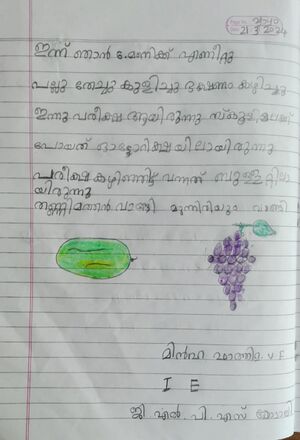 വ്യാഴം
21 3 2024
ഇന്ന് ഞാൻ 6 മണിക്ക് എണീറ്റു
പല്ലു തേച്ചു കുളിച്ചു ഭക്ഷണം കഴിച്ചു
ഇന്നു പരീക്ഷ ആയിരുന്നു സ്കൂളിലേക്ക്
പോയത് ഓട്ടോറിക്ഷയിലായിരുന്നു
പരീക്ഷ കഴിഞ്ഞിട്ട് വന്നത് ബുള്ളറ്റിലാ
യിരുന്നു
തണ്ണിമത്തൻ വാങ്ങി മുന്തിരിയും വാങ്ങി
മിൻഹ ഫാത്തിമ V F
I E
ജി എൽ പി എസ്